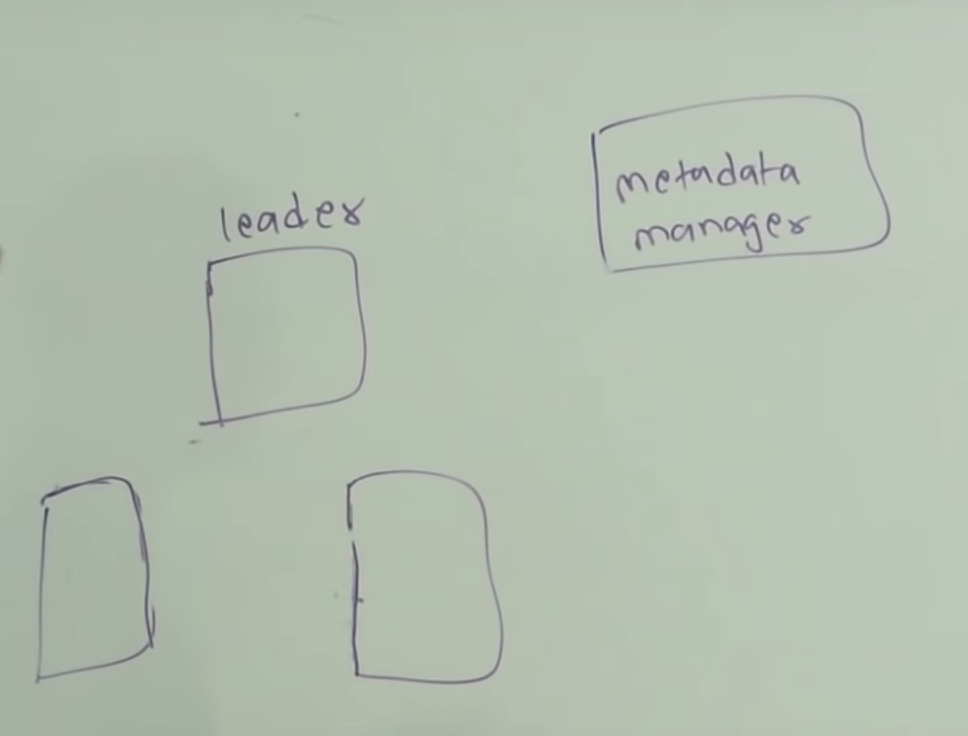 leader
metadata
manager